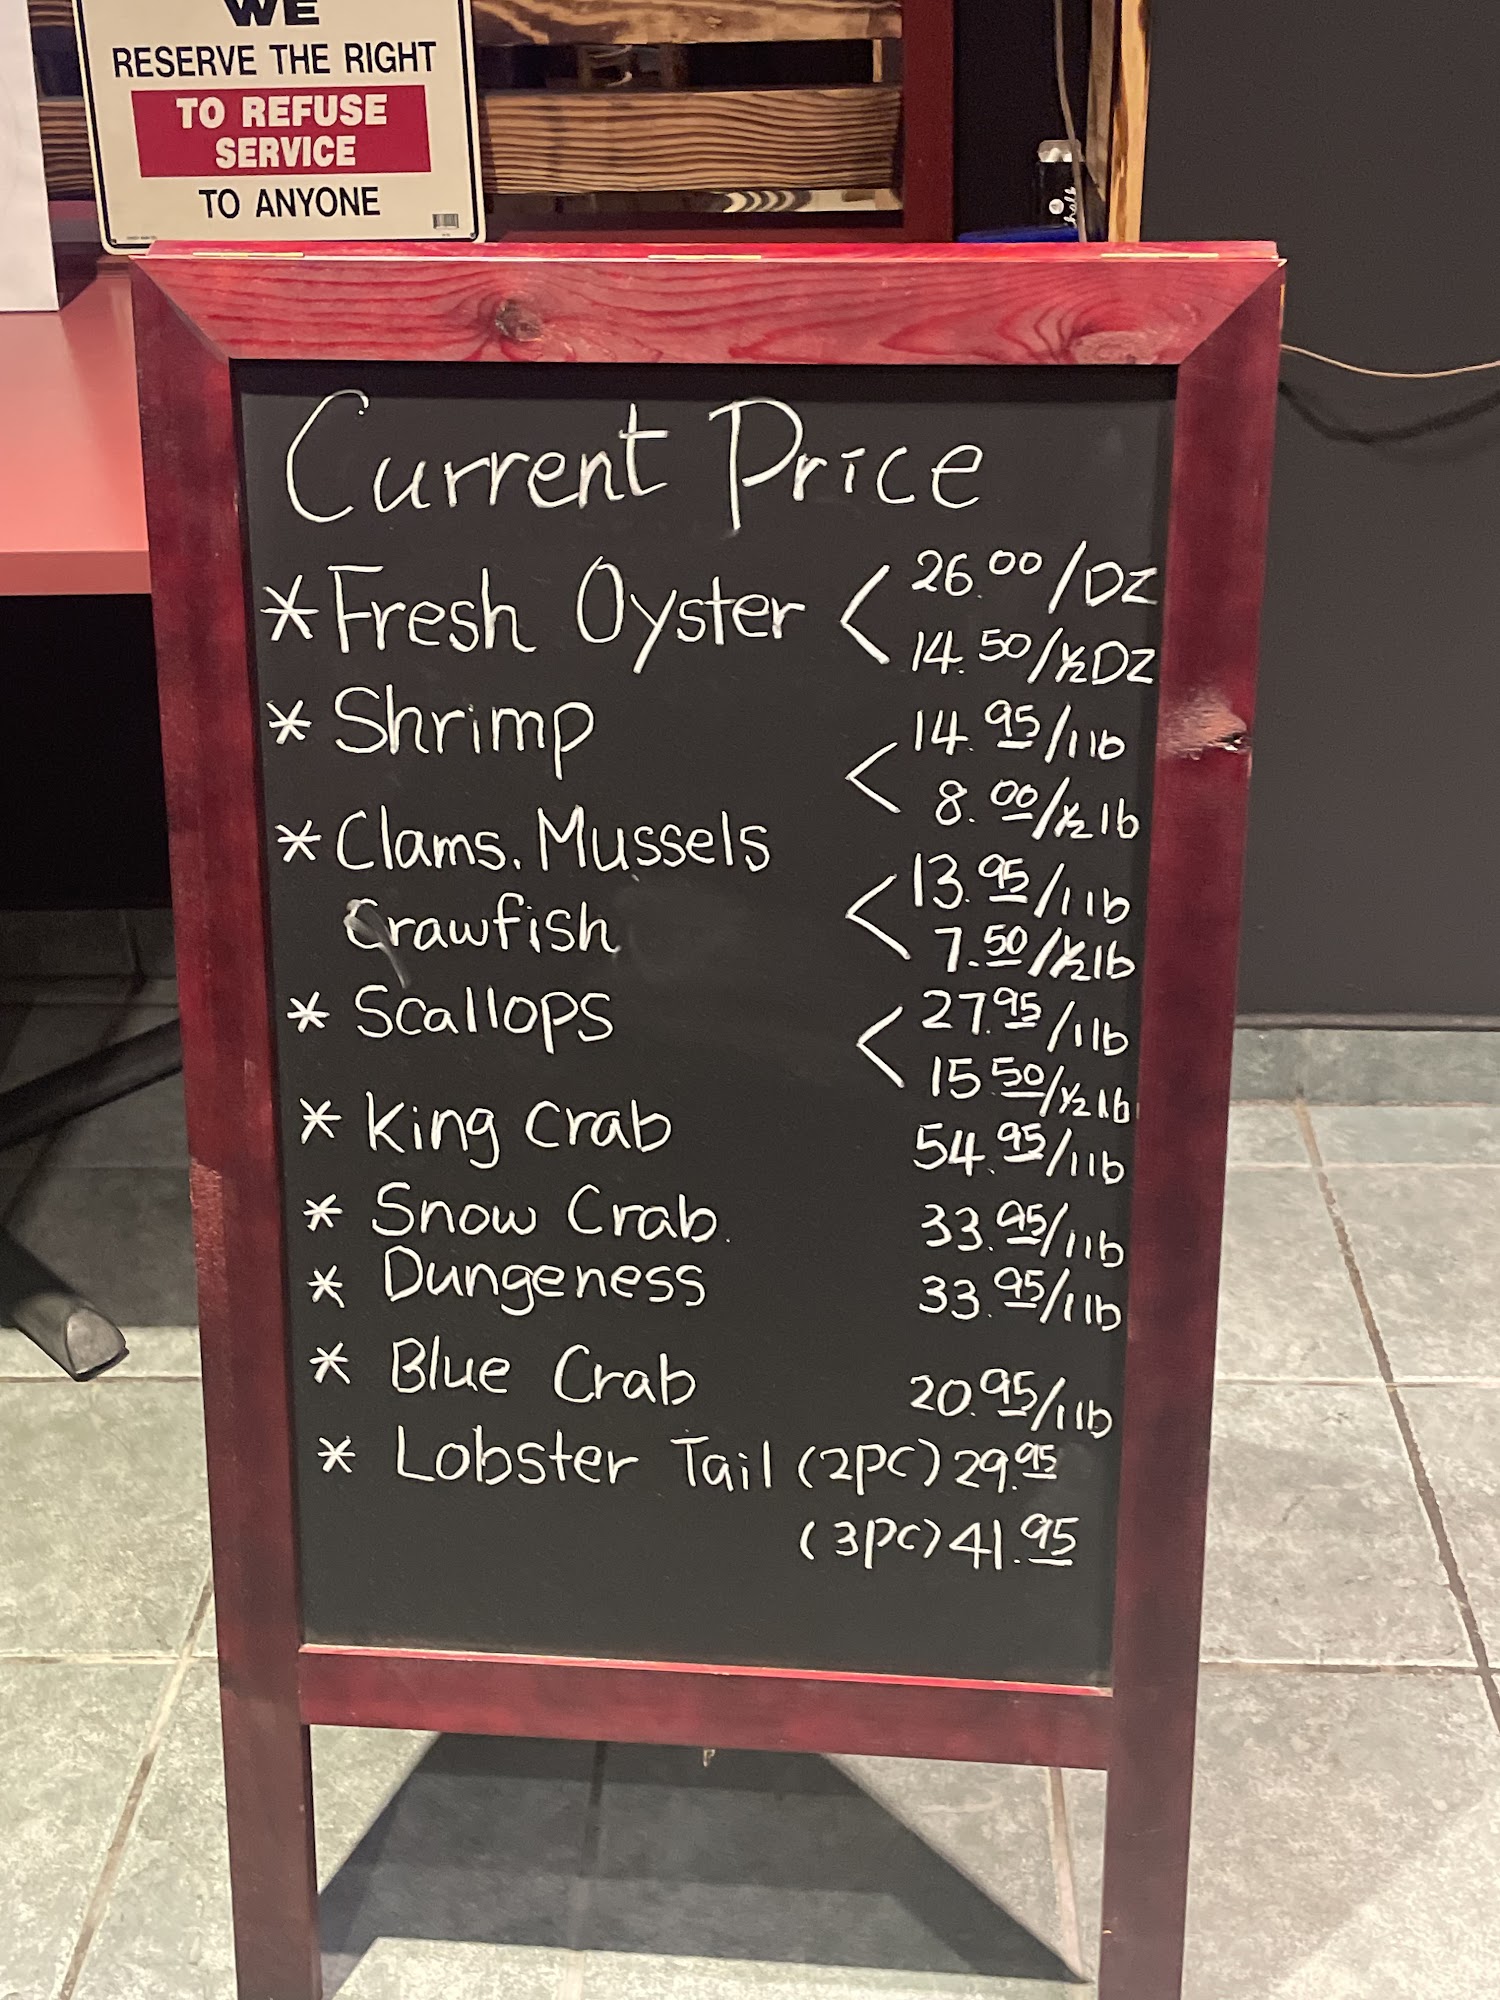 WE
RESERVE THE RIGHT
TO REFUSE
SERVICE
TO ANYONE
Current Price
* Fresh Oyster < 26.00/DZ
14.50/½DZ
* Shrimp < 14.95/1lb
8.00/½lb
* Clams. Mussels
Crawfish < 13.95/1lb
7.50/½lb
* Scallops < 27.95/1lb
15.50/½lb
* King Crab 54.95/1lb
* Snow Crab. 33.95/1lb
* Dungeness 33.95/1lb
* Blue Crab 20.95/1lb
* Lobster Tail (2PC) 29.95
(3PC) 41.95